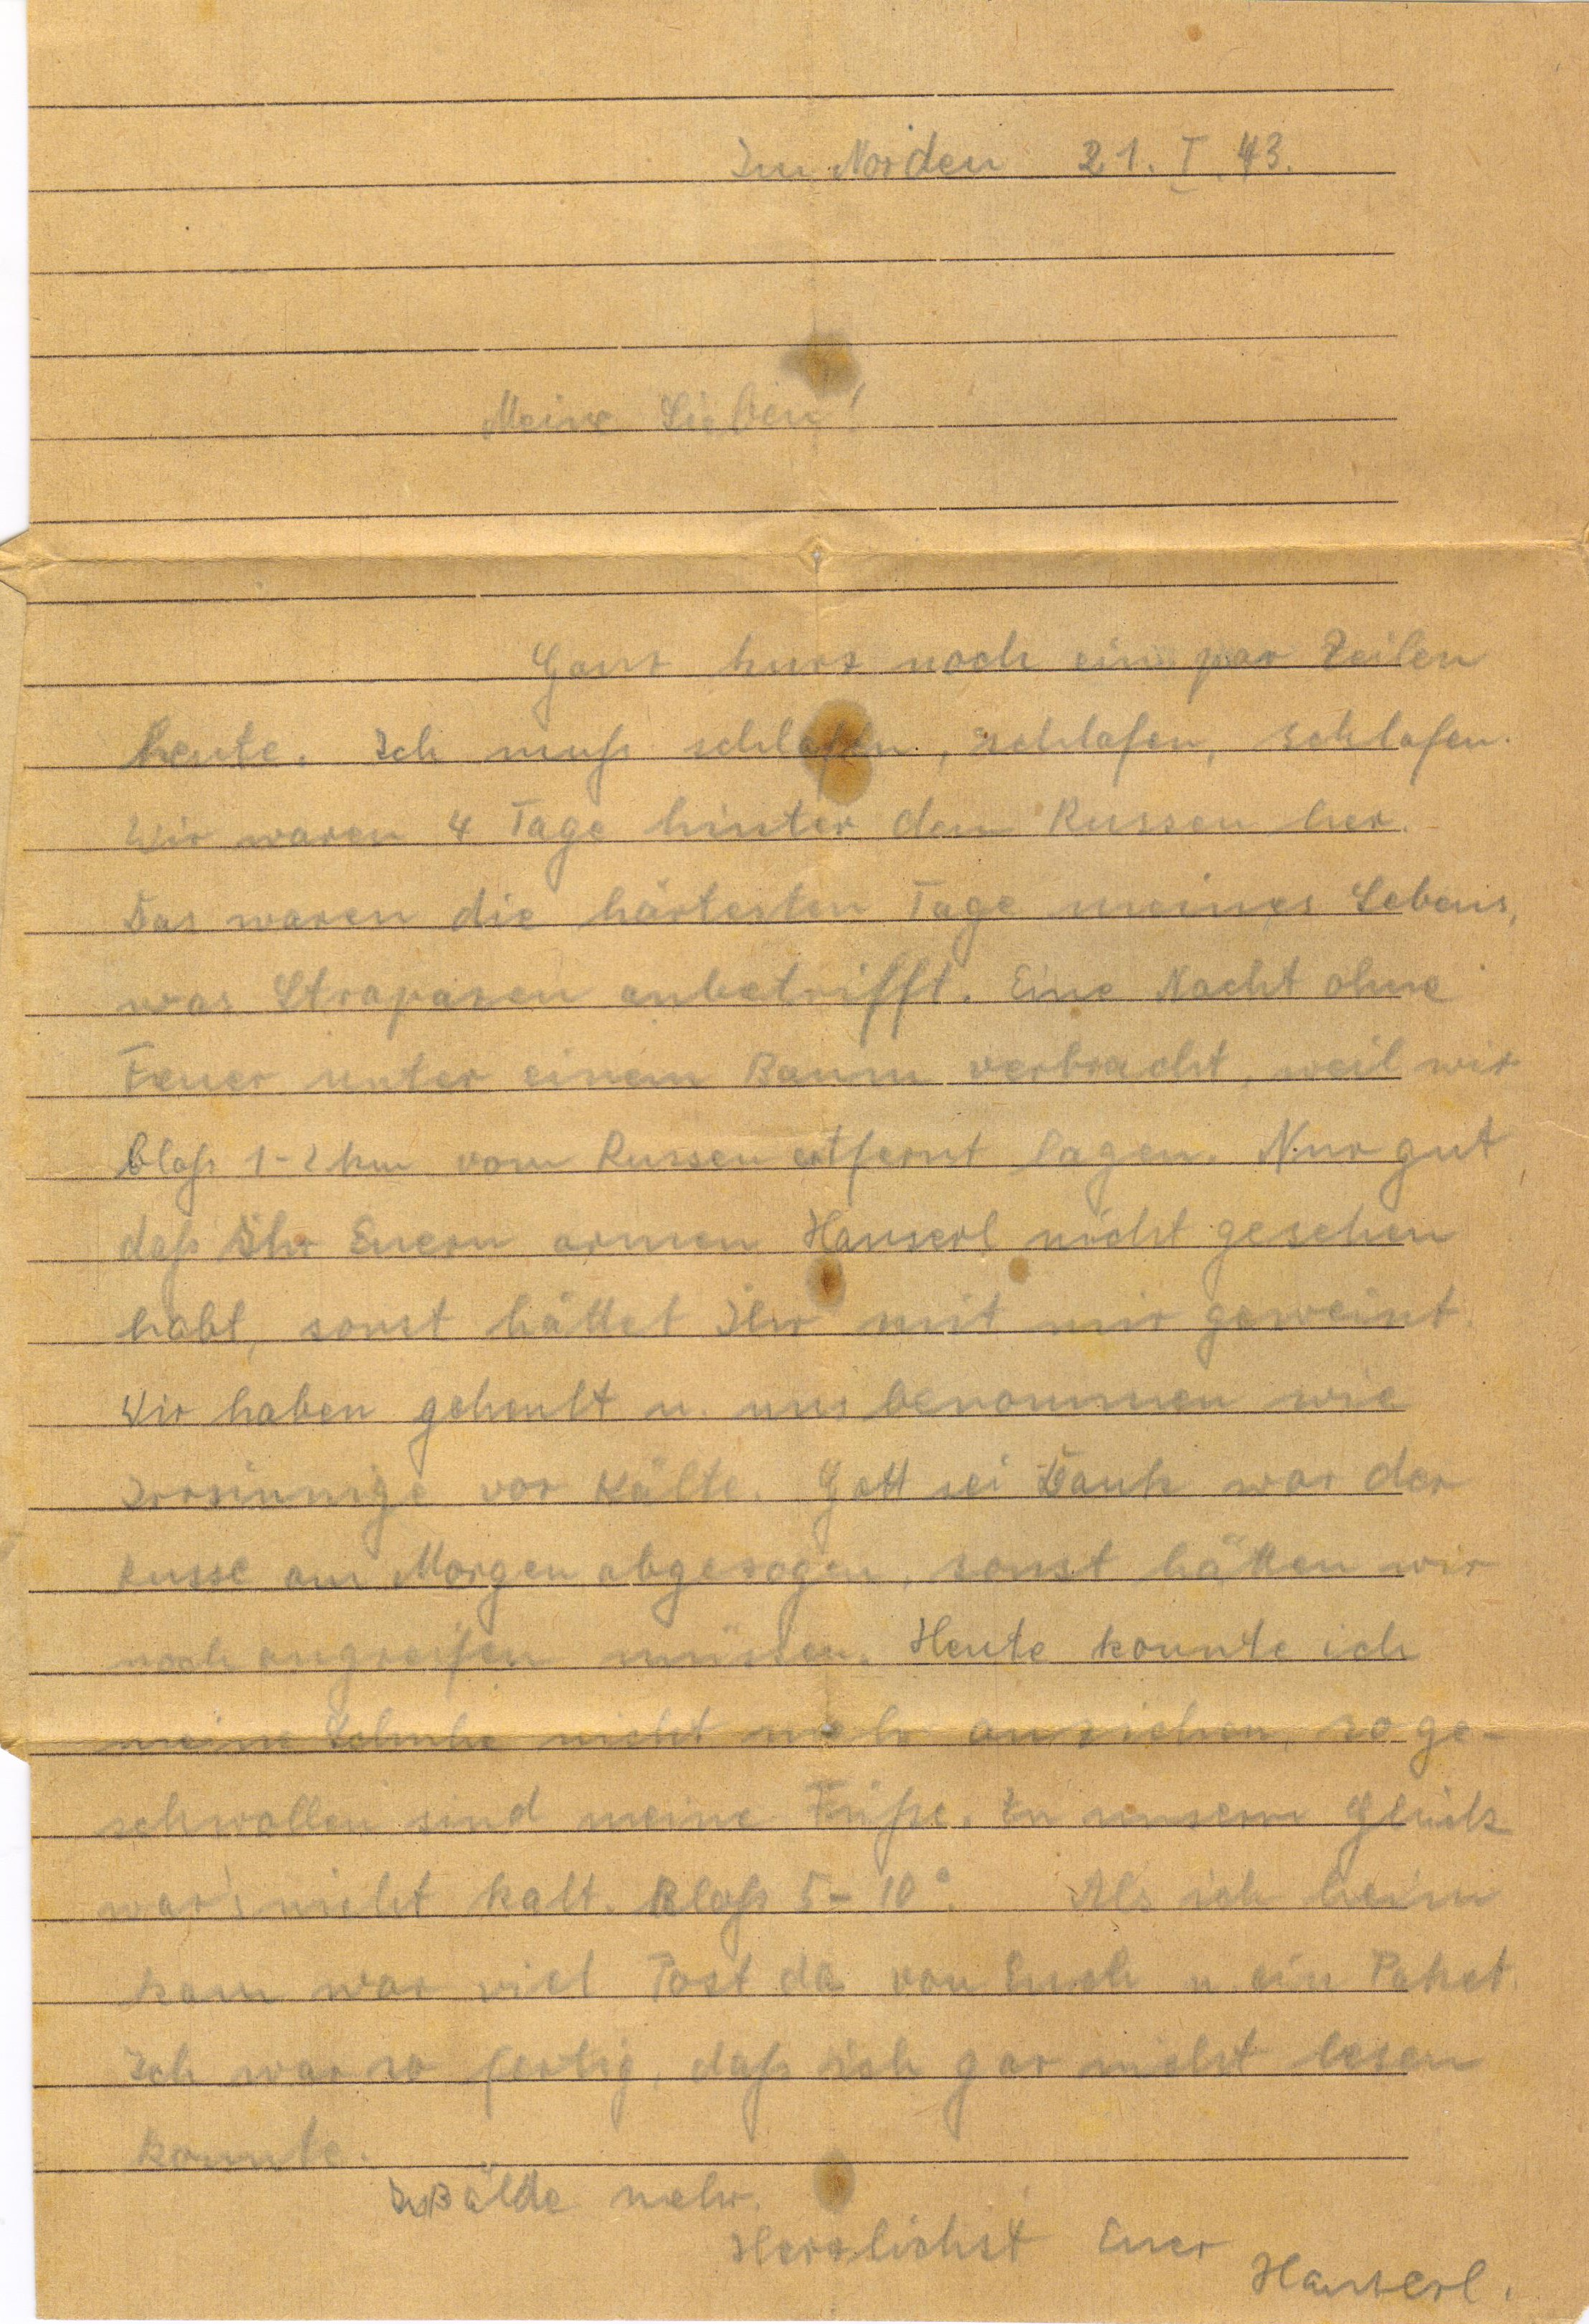 Im Norden 21. I. 43.
Meine Lieben!
Ganz kurz noch ein par Zeilen
heute. Ich muß schlafen, schlafen, schlafen.
Wir waren 4 Tage hinter dem Russen her.
Das waren die härtesten Tage meines Lebens,
was Strapazen anbetrifft. Eine Nacht ohne
Feuer unter einem Baum verbracht, weil wir
bloß 1-2 km vom Russen entfernt lagen. Nur gut
daß Ihr Euern armen Hanserl nicht gesehen
habt, sonst hättet Ihr mit mir geweint.
Wir haben geheult u. uns benommen wie
Irrsinnige vor Kälte. Gott sei Dank war der
Russe am Morgen abgezogen, sonst hätten wir
noch angreifen müssen. Heute konnte ich
meine Schuhe nicht mehr anziehen, so ge-
schwollen sind meine Füße. Zu unserm Glück
war's nicht kalt. Bloß 5-10°. Als ich heim
kam war viel Post da von Euch u. ein Paket.
Ich war so fertig, daß ich gar nicht lesen
konnte.
In Bälde mehr.
Herzlichst Euer
Hanserl.